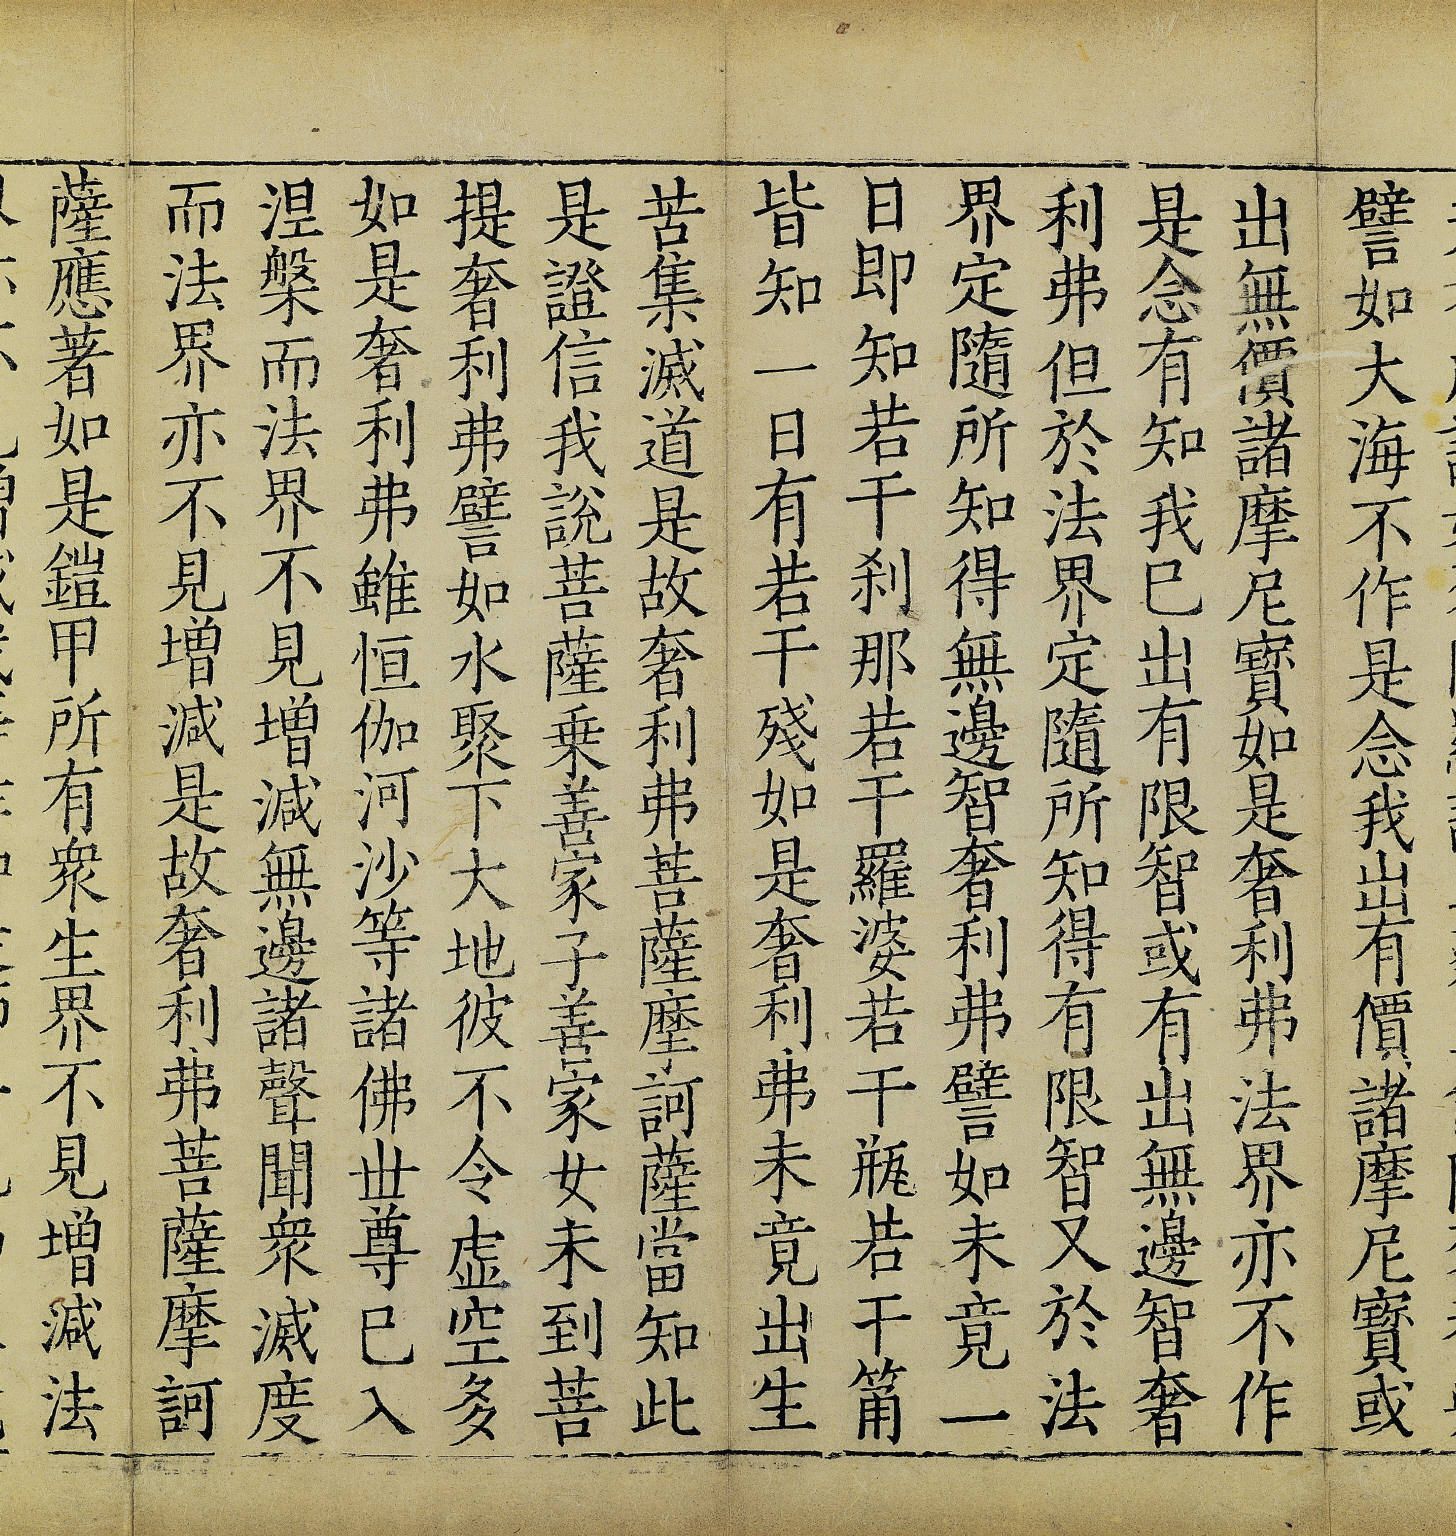 譬如大海不作是念我出有價諸摩尼寶或
出無價諸摩尼寶如是奢利弗法界亦不作
是念有知我已出有限智或有出無邊智奢
利弗但於法界定隨所知得有限智又於法
界定隨所知得無邊智奢利弗譬如未竟一
日即知若干刹那若干羅婆若干瓶若干筩
皆知一日有若干殘如是奢利弗未竟出生
苦集滅道是故奢利弗菩薩摩訶薩當知此
是證信我說菩薩乗善家子善家女未到菩
提奢利弗譬如水聚下大地彼不令虛空多
如是奢利弗雖恒伽河沙等諸佛世尊已入
涅槃而法界不見增減無邊諸聲聞衆滅度
而法界亦不見增減是故奢利弗菩薩摩訶
薩應著如是鎧甲所有衆生界不見增減法